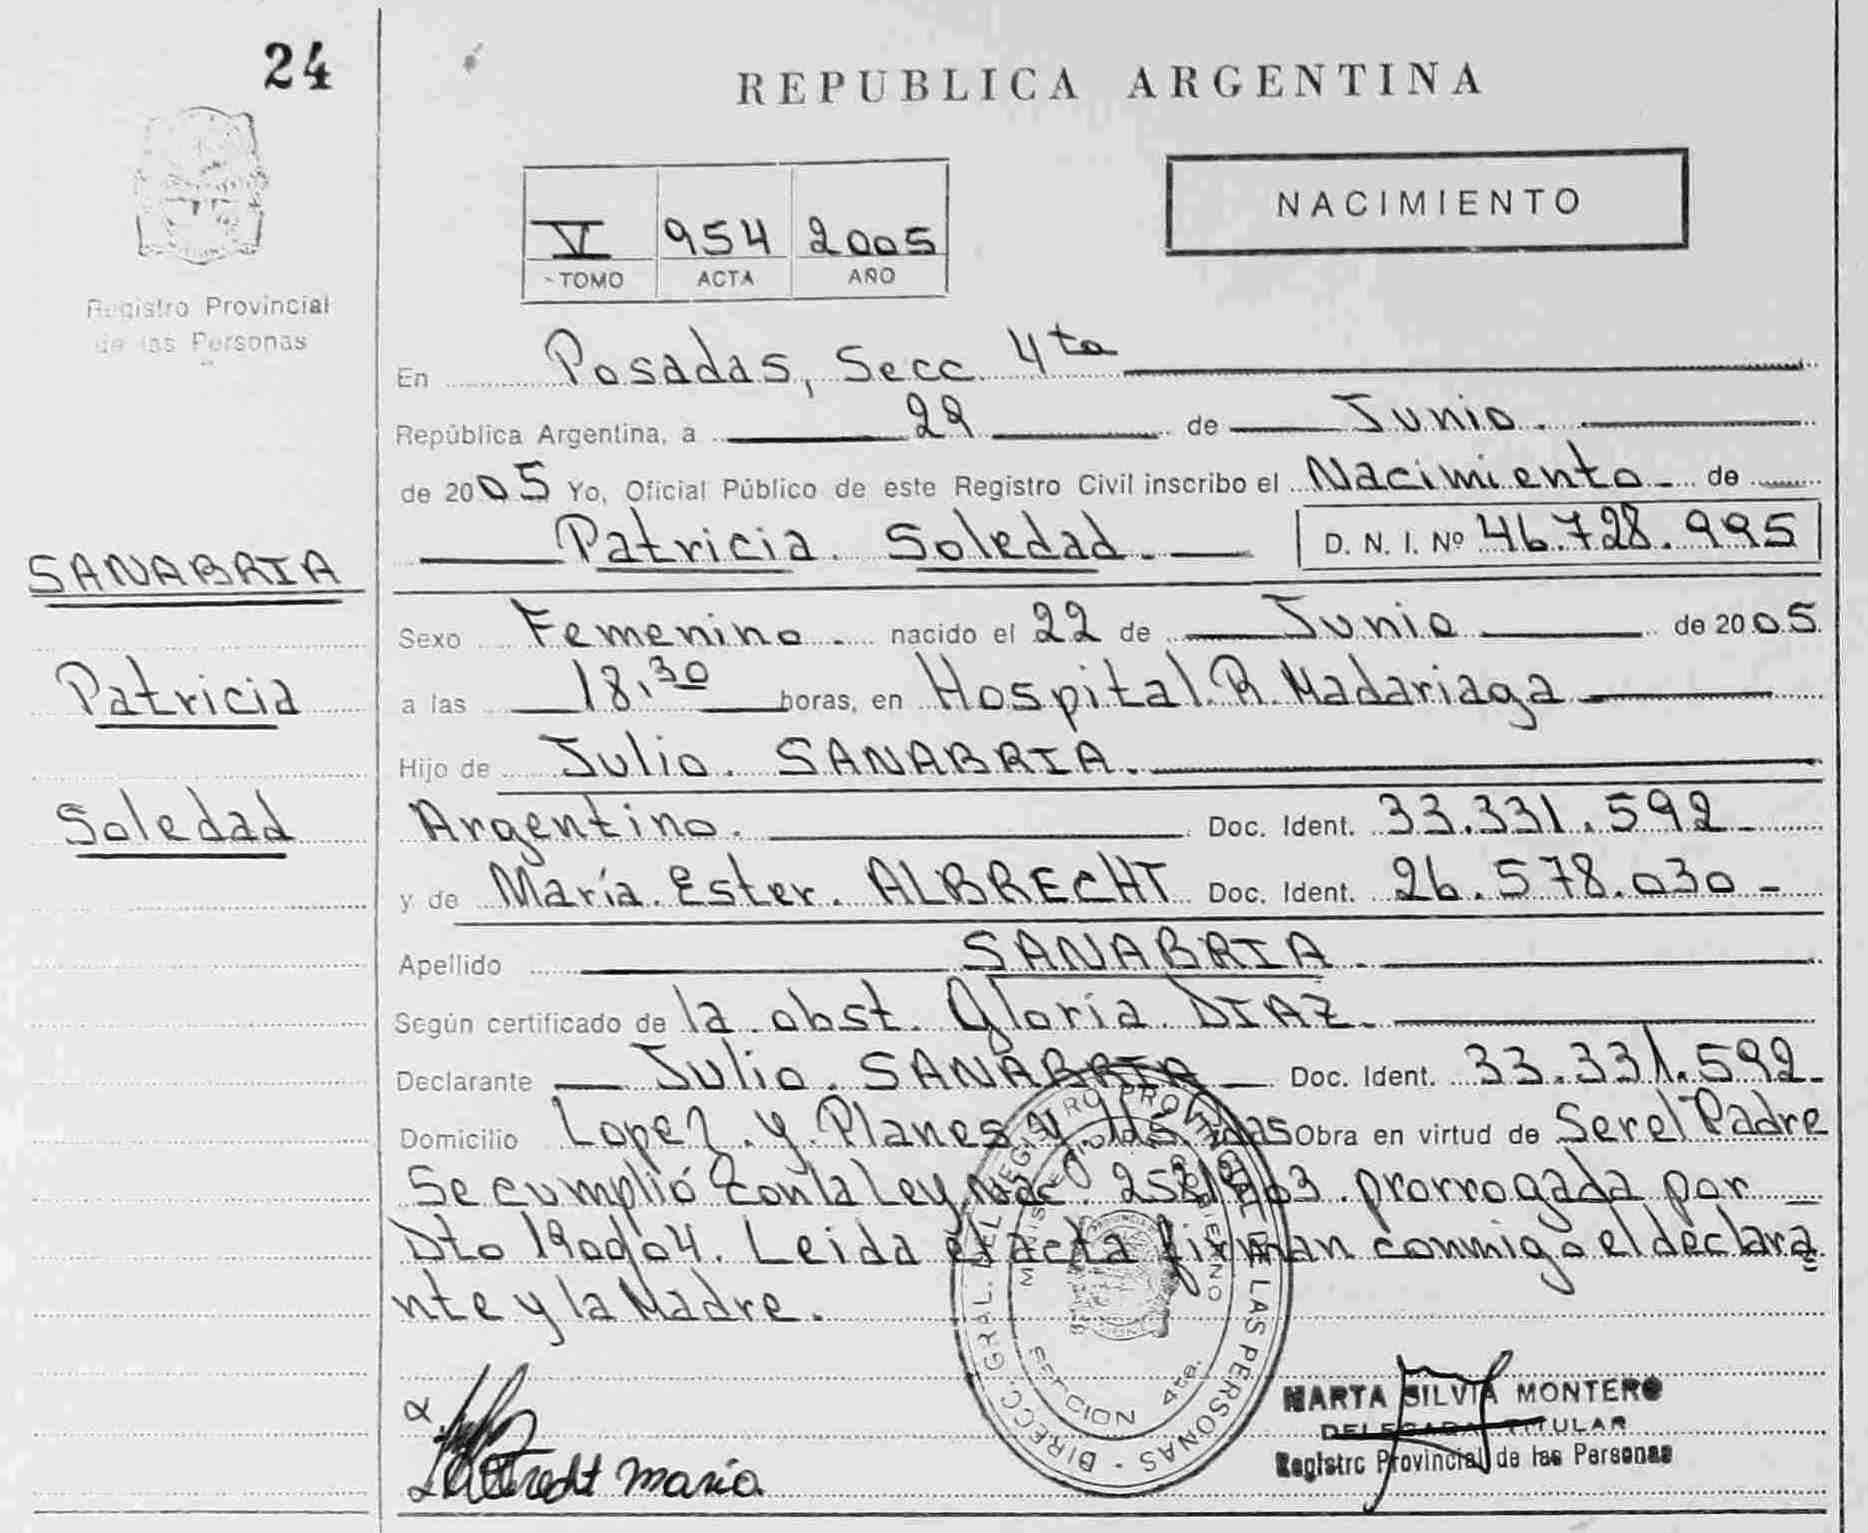 24
REPUBLICA ARGENTINA
Registro Provincial
de las Personas
NACIMIENTO
V 954 2005
TOMO ACTA AÑO
En Posadas, Secc. 4ta
República Argentina, a 29 de Junio.
de 2005 Yo, Oficial Público de este Registro Civil inscribo el Nacimiento de
Patricia Soledad. D. N. I. Nº 46.728.995
SANABRIA
Patricia
Soledad
Sexo Femenino nacido el 22 de Junio de 2005.
a las 18.30 horas, en Hospital R. Madariaga
Hijo de Julio SANABRIA.
Argentino. Doc. Ident. 33.331.592
y de María Ester ALBRECHT Doc. Ident. 26.578.030
Apellido SANABRIA.
Según certificado de la obst. Gloria DIAZ
Declarante Julio SANABRIA Doc. Ident. 33.331.592
Domicilio Lopez y Planes y Obra en virtud de Ser el Padre
Se cumplió con la Ley prorrogada por
Dto 1900/04. Leida el acta firman conmigo el declara
nte y la Madre.
DIRECC. GRAL. DEL REGISTRO PROVINCIAL DE LAS PERSONAS
SECCION 4ta.
MARTA SILVIA MONTERO
DELEGADA TITULAR
Registro Provincial de las Personas
maria